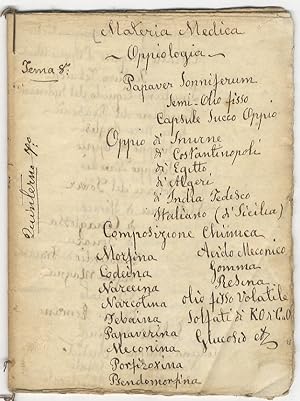 Materia Medica
Oppiologia
Tema 8º
Papaver Sonniferum
Semi-Olio fisso
Capsule Succo Oppio
Oppio di Smirne
di Costantinopoli
di Egitto
di Algeri
di India Tedesco
Italiano (di Sicilia)
Quinterno 1º
Composizione Chimica
Morfina Acido Meconico
Codeina Gomma
Narceina Resina
Narcotina olio fisso Volatile
Tebaina Solfati di KO di CaO
Papaverina Glucosio
Meconina
Porfiroxina
Pseudomorfina